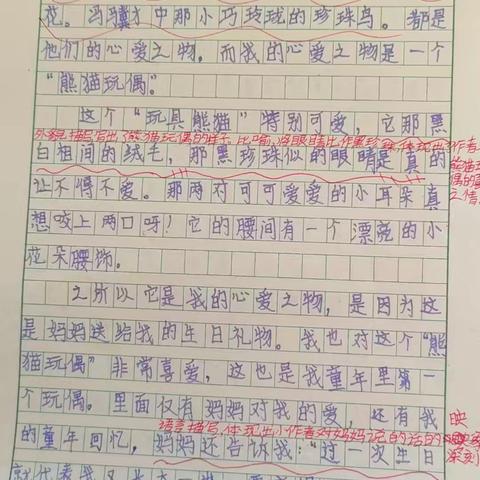 花。冯骥才中那小巧玲珑的珍珠鸟。都是
他们的心爱之物，而我的心爱之物是一个
“熊猫玩偶”。
这个“玩具熊猫”特别可爱，它那黑
外貌描写写出了熊猫玩偶的样子，比喻，将眼睛比作黑珍珠，体现出
作者
白相间的绒毛，那黑珍珠似的眼睛是真的
让不得不爱。那两对可可爱爱的小耳朵真
之情
想咬上两口呀！它的腰间有一个漂亮的小
花朵腰饰。
之所以它是我的心爱之物，是因为这
是妈妈送给我的生日礼物。我也对这个“熊
猫玩偶”非常喜爱，这也是我童年里第一
个玩偶。里面仅有妈妈对我的爱，还有我
语言描写，体现出小作者对妈妈说的话的
映
的童年回忆，妈妈还告诉我：“过一次生日
深刻
就代表我又长大一